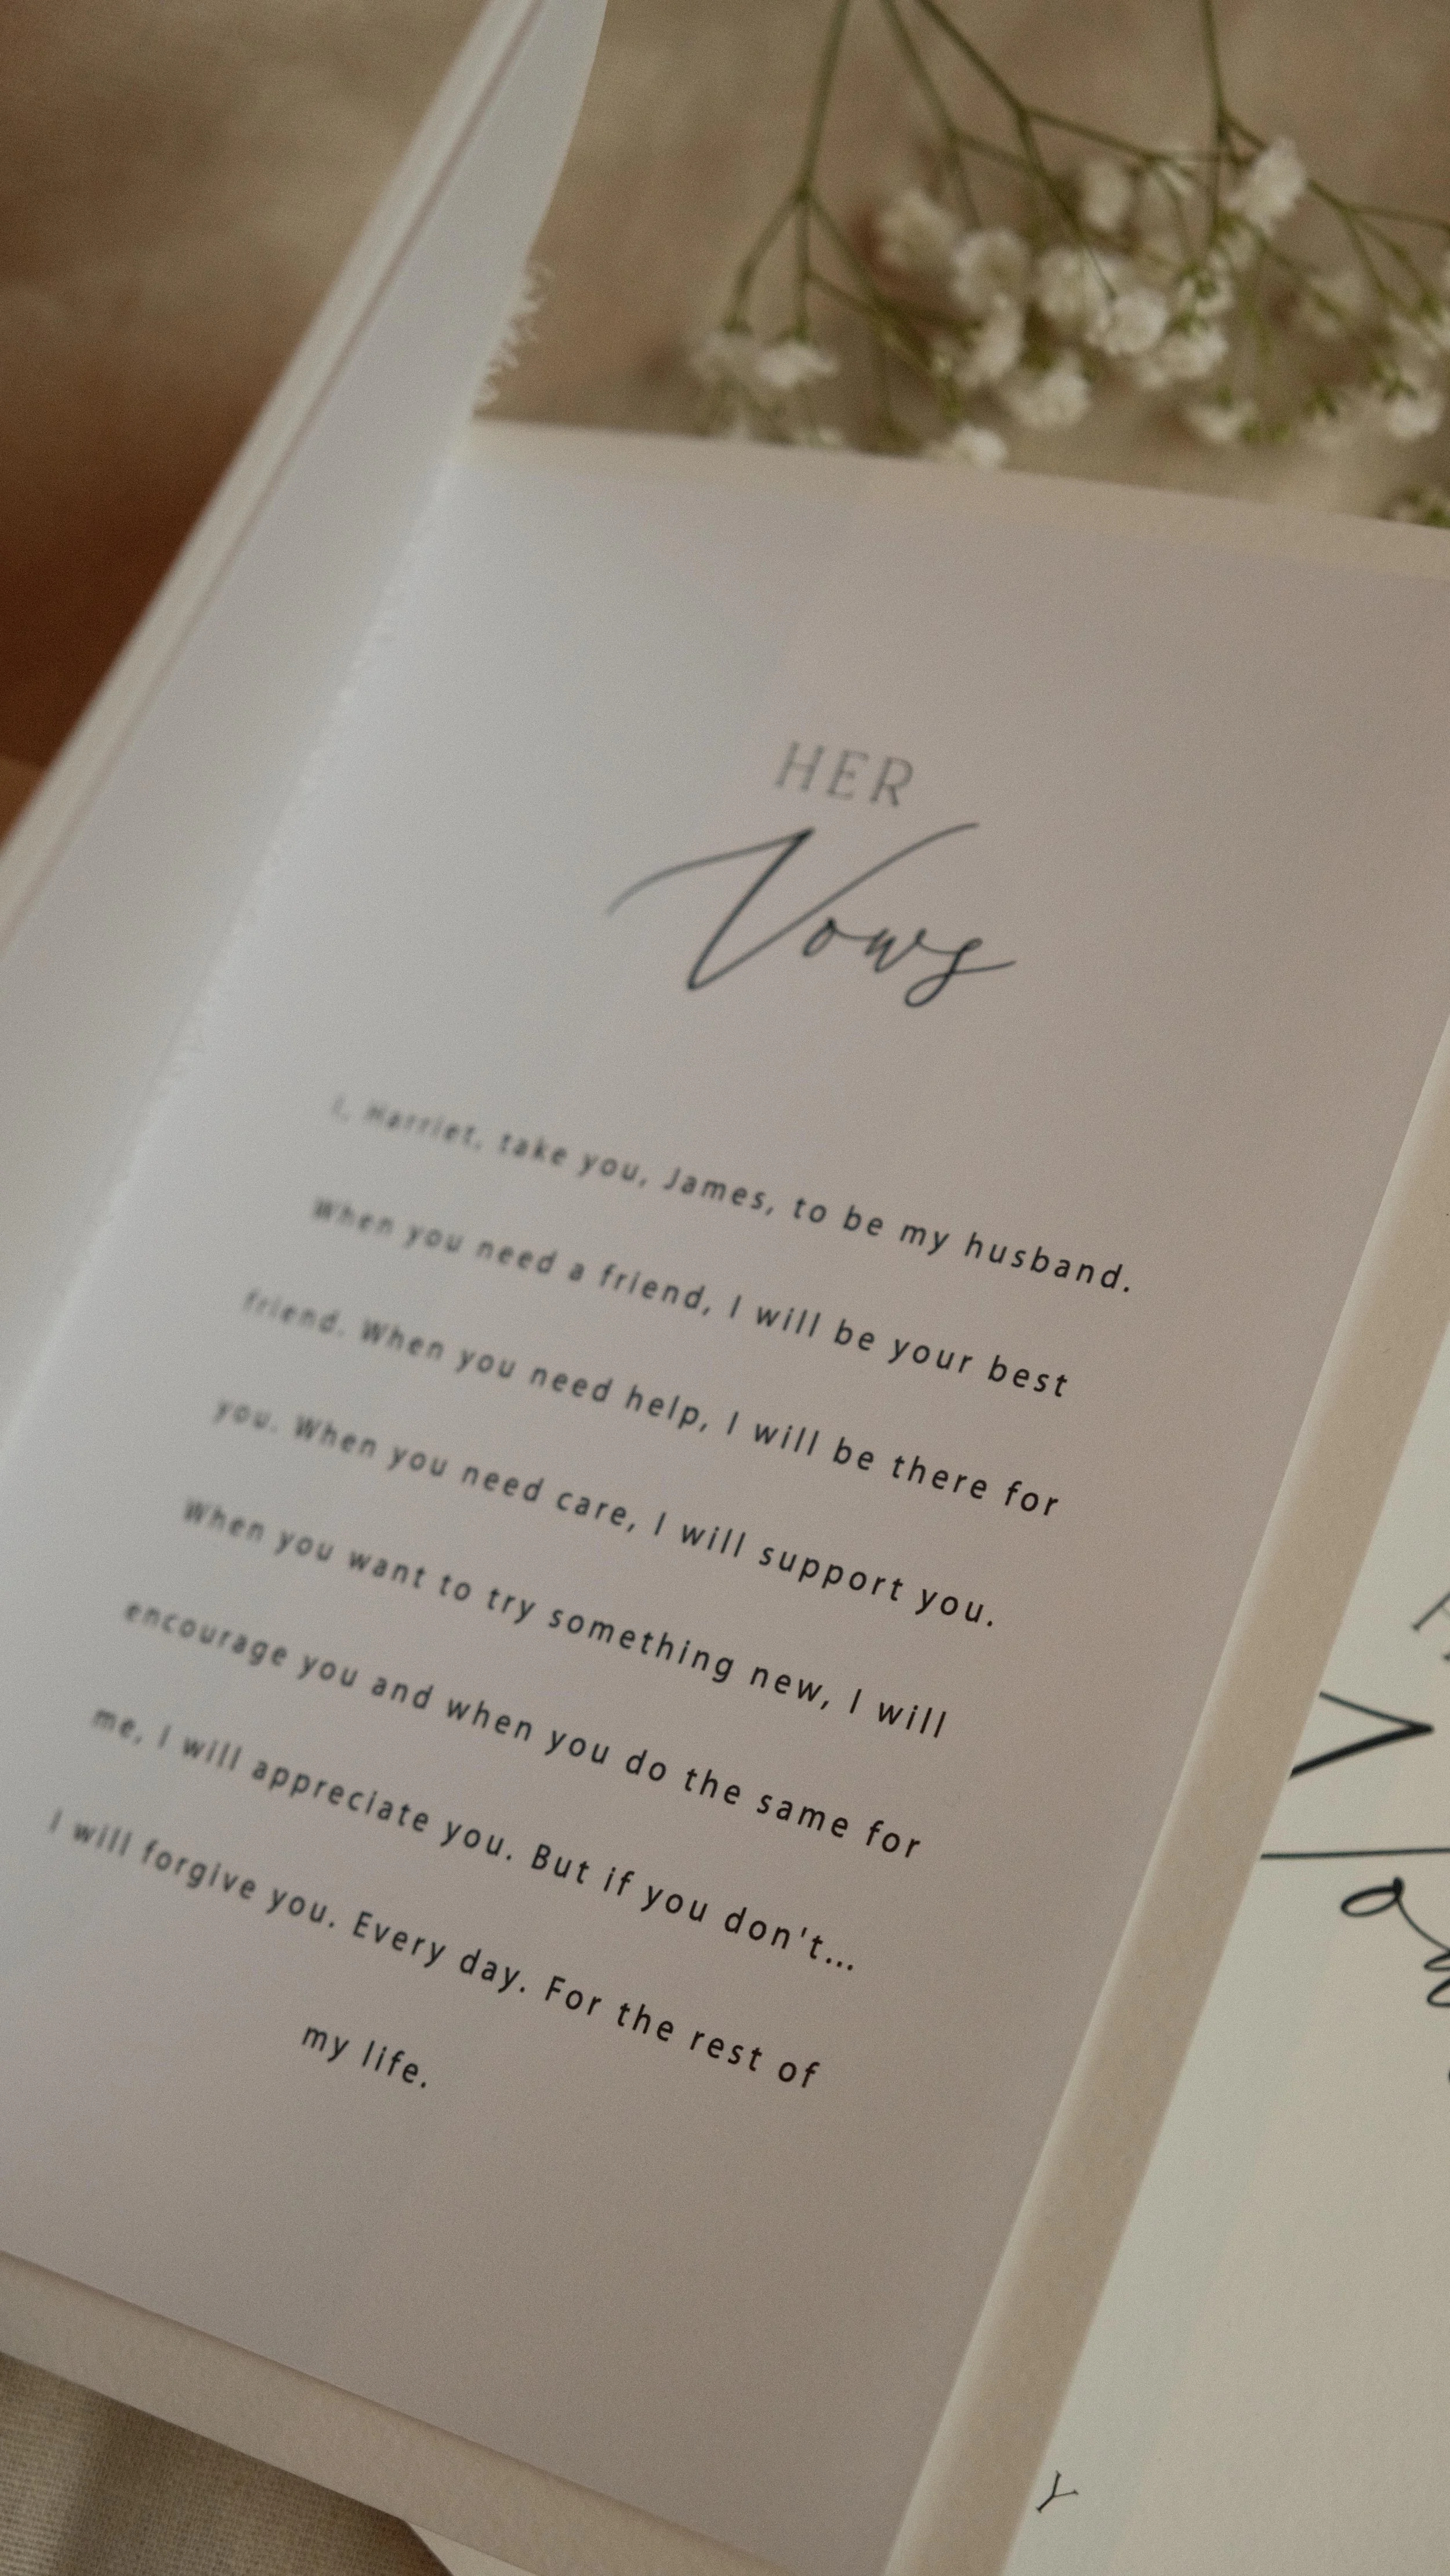 HER
Vows
I, Harriet, take you, James, to be my husband.
When you need a friend, I will be your best
friend. When you need help, I will be there for
you. When you need care, I will support you.
When you want to try something new, I will
encourage you and when you do the same for
me, I will appreciate you. But if you don't...
I will forgive you. Every day. For the rest of
my life.
Y